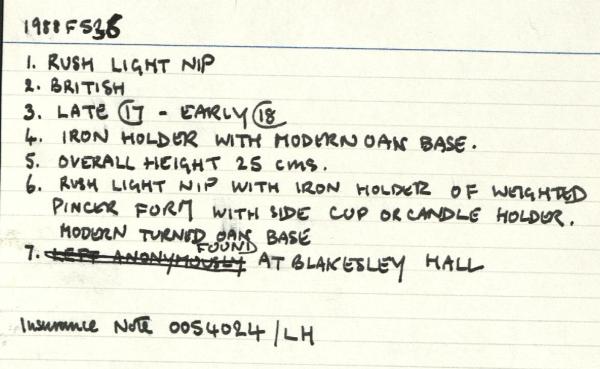 1988F536
1. RUSH LIGHT NIP
2. BRITISH
3. LATE 17 - EARLY 18
4. IRON HOLDER WITH MODERN OAK BASE.
5. OVERALL HEIGHT 25 cms.
6. RUSH LIGHT NIP WITH IRON HOLDER OF WEIGHTED
PINCER FORM WITH SIDE CUP OR CANDLE HOLDER.
MODERN TURNED OAK BASE
7. LEFT ANONYMOUSLY FOUND AT BLAKESLEY HALL
Insurance Note 0054024/LH